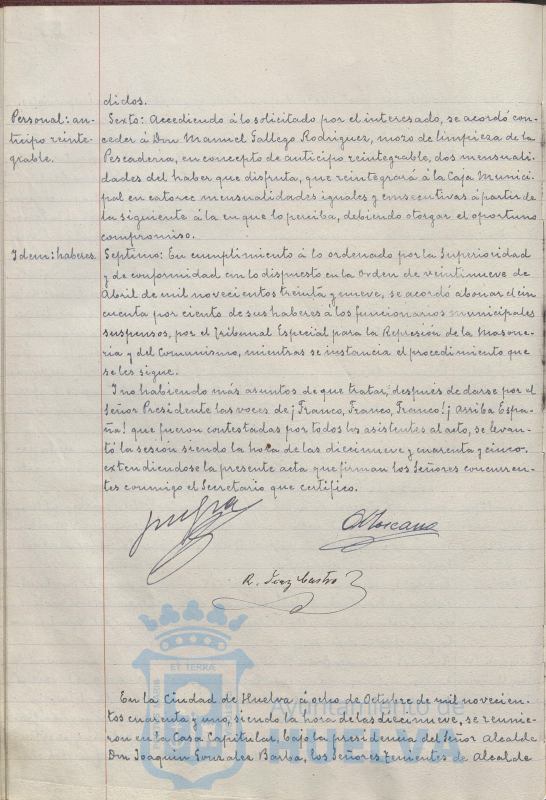 didos.
Personal: an-
ticipo reinte-
grable.
Sexto: Accediendo á lo solicitado por el interesado, se acordó con-
ceder á Don Manuel Gallego Rodriguez, mozo de limpieza de la
Pescaderia, en concepto de anticipo reintegrable, dos mensuali-
dades del haber que disfruta, que reintegrará á la Caja Munici-
pal en catorce mensualidades iguales y consecutivas á partir de
la siguiente á la en que lo perciba, debiendo otorgar el oportuno
compromiso.
Idem: haberes.
Septimo: En cumplimiento á lo ordenado por la Superioridad
y de conformidad con lo dispuesto en la Orden de veintinueve de
Abril de mil novecientos treinta y nueve, se acordó abonar el cin
cuenta por ciento de sus haberes á los funcionarios municipales
suspensos, por el Tribunal Especial para la Represión de la Masone-
ria y del Comunismo, mientras se instancia el procedimiento que
se les sigue.
Y no habiendo más asuntos de que tratar, después de darse por el
Señor Presidente las voces de ¡Franco, Franco, Franco! ¡Arriba Espa-
ña! que fueron contestadas por todos los asistentes al acto, se levan-
tó la sesión siendo la hora de las diecinueve y cuarenta y cinco.
extendiendose la presente acta que firman los Señores concurren-
tes conmigo el Secretario que certifico.
R. Diaz Castro
ET TERRÆ
En la Ciudad de Huelva, á ocho de Octubre de mil novecien-
tos cuarenta y uno, siendo la hora de las diecinueve, se reunie-
ron en la Casa Capitular, bajo la presidencia del Señor Alcalde
Don Joaquin Gonzalez Barba, los Señores Tenientes de Alcalde
Ayuntamiento de
HUELVA